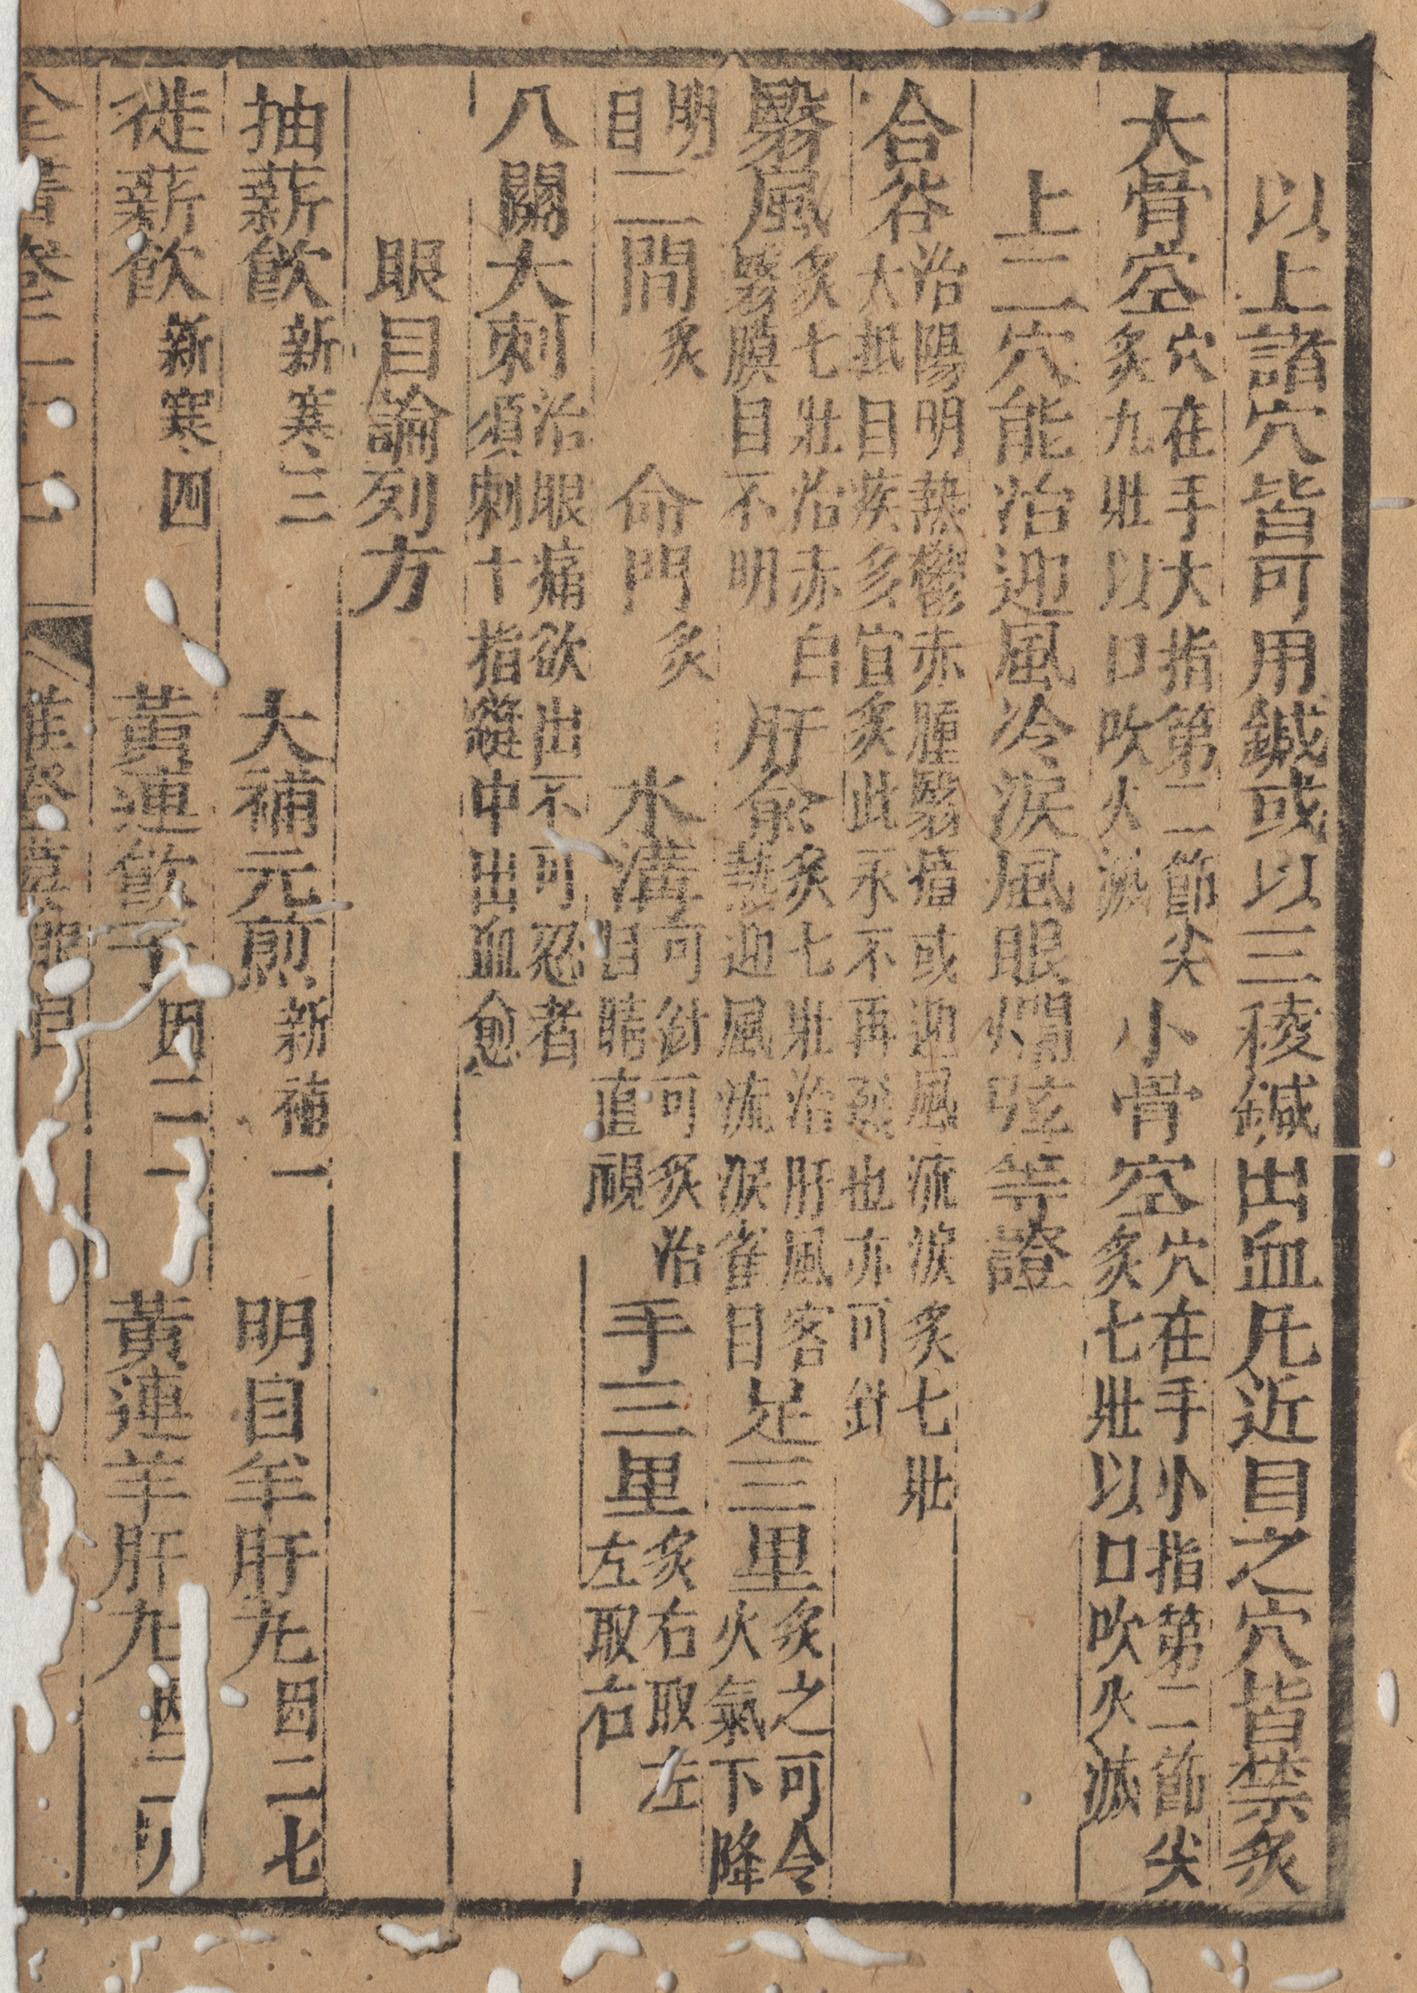 以上諸穴皆可用鍼或以三稜鍼出血凡近目之穴皆禁灸
大骨空穴在手大指第二節尖灸九壯以口吹火滅 小骨空穴在手小指第二節尖灸七壯以口吹火滅
上二穴能治迎風冷淚風眼爛弦等證
合谷治陽明熱鬱赤腫翳瘴或迎風流淚灸七壯大抵目疾多宜灸此永不再發也亦可針
翳風灸七壯治赤白翳膜目不明 肝俞灸七壯治肝風客熱迎風流淚雀目 足三里灸之可令火氣下降
明目二間灸 命門灸 水溝可針可灸治目睛直視 手三里灸右取左左取右
八關大刺治眼痛欲出不可忍者須刺十指縫中出血愈
眼目論列方
抽薪飲新寒三 大補元煎新補一 明目羊肝丸因二七
徙薪飲新寒四 黃連飲子因二一 黃連羊肝丸因二八
全書卷二十七